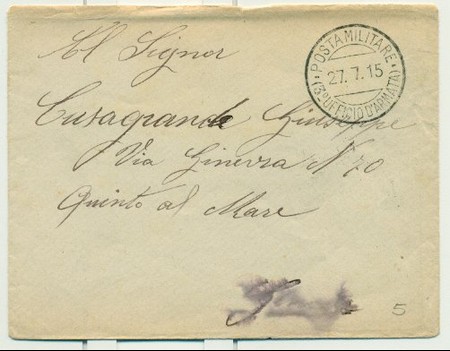 Al Signor
POSTA MILITARE
27.7.15
(3º UFFICIO D'ARMATA)
Casagrande Giuseppe
Via Ginevra N 70
Quinto al Mare
5